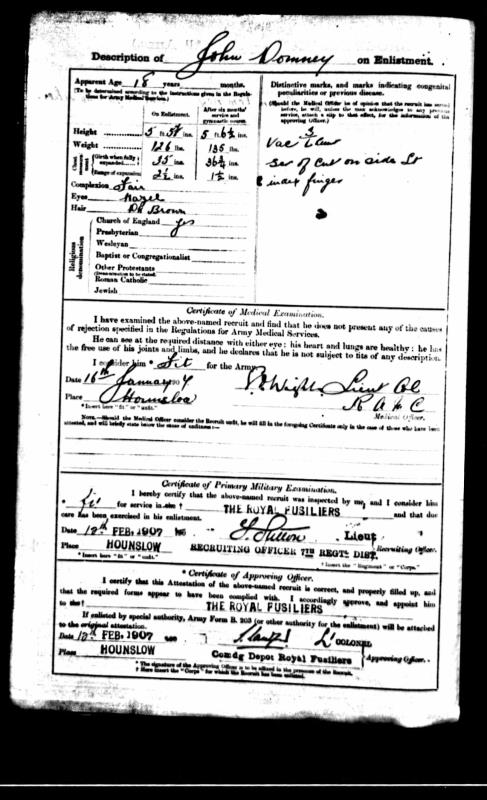 Description of John Domney on Enlistment.
Apparent Age 18 years months.
(To be determined according to the instructions given in the Regulations for Army Medical Services.)
On Enlistment. After six months' service and gymnastic course.
Height 5 ft. ins. 5 ft. 6½ ins.
Weight 126 lbs. 135 lbs.
Chest measurement Girth when fully expanded 35 ins. 36½ ins.
Range of expansion 2½ ins. 1½ ins.
Complexion Fair
Eyes Hazel
Hair Dk Brown
Religious denomination
Church of England yes
Presbyterian
Wesleyan
Baptist or Congregationalist
Other Protestants
(Denomination to be stated.)
Roman Catholic
Jewish
Distinctive marks, and marks indicating congenital peculiarities or previous disease.
(Should the Medical Officer be of opinion that the recruit has served before, he will, unless the man acknowledges to any previous service, attach a slip to that effect, for the information of the approving Officer.)
Vac 3
Scar of Cut on side Lt
index finger
Certificate of Medical Examination.
I have examined the above-named recruit and find that he does not present any of the causes
of rejection specified in the Regulations for Army Medical Services.
He can see at the required distance with either eye; his heart and lungs are healthy; he has
the free use of his joints and limbs, and he declares that he is not subject to fits of any description.
I consider him * Fit for the Army.
Date 16th January 1907 Wright Lieut Col
Place Hounslow R A M C
Medical Officer.
* Insert here "fit" or "unfit."
NOTE.—Should the Medical Officer consider the Recruit unfit, he will fill in the foregoing Certificate only in the case of those who have been
attested, and will briefly state below the cause of unfitness:—
Certificate of Primary Military Examination.
I hereby certify that the above-named recruit was inspected by me, and I consider him
* fit for service in the † THE ROYAL FUSILIERS and that due
care has been exercised in his enlistment.
Date 12th FEB. 1907 Sutton Lieut
Place HOUNSLOW RECRUITING OFFICER 7TH REGTL DIST. Recruiting Officer.
* Insert here "fit" or "unfit." † Insert the "Regiment" or "Corps."
* Certificate of Approving Officer.
I certify that this Attestation of the above-named recruit is correct, and properly filled up, and
that the required forms appear to have been complied with. I accordingly approve, and appoint him
to the † THE ROYAL FUSILIERS
If enlisted by special authority, Army Form B. 203 (or other authority for the enlistment) will be attached
to the original attestation.
Date 12th FEB. 1907 Lt COLONEL
Place HOUNSLOW Comdg Depot Royal Fusiliers Approving Officer.
* The signature of the Approving Officer is to be affixed in the presence of the Recruit.
† Here insert the "Corps" for which the Recruit has been enlisted.